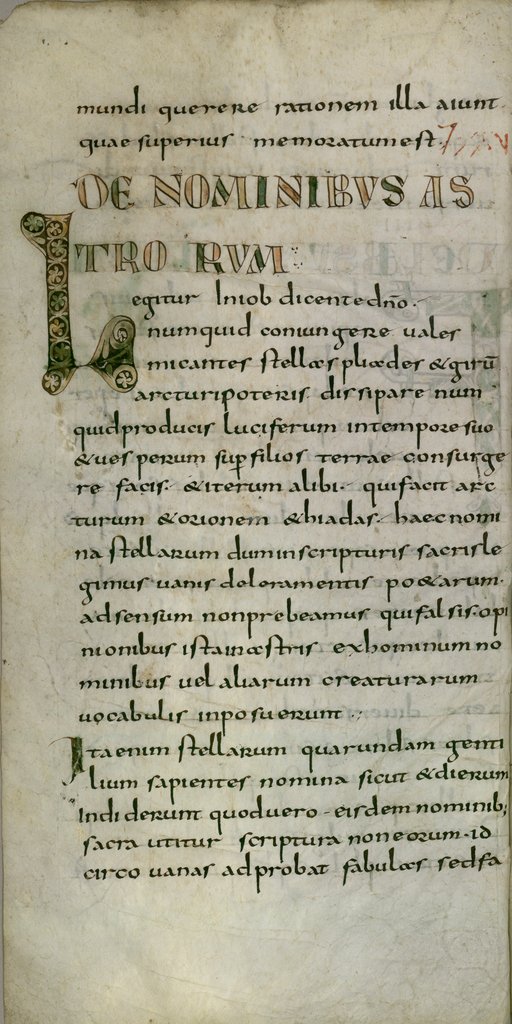 mundi querere rationem illa aiunt
quae superius memoratum est. XXV
DE NOMINIBUS AS
TRO RUM
Legitur In iob dicente dño.
numquid coniungere vales
micantes stellæs pliædes & girũ
arcturi poteris dissipare num
quid producis luciferum in tempore suo
& ves perum sup filios terrae consurge
re facis. & iterum alibi. qui facit arc
turum & orionem & hiadas. haec nomi
na stellarum dum in scripturis sacris le
gimus vanis deleramentis po&arum.
ad sensum non prebeamus qui falsis opi
nionibus ista in æstris ex hominum no
minibus vel aliarum creaturarum
vocabulis inposuerunt.,
Ita enim stellarum quarundam genti
lium sapientes nomina sicut & dierum
Indiderunt quod vero eisdem nominib;
sacra utitur scriptura non eorum id
circo vanas adprobat fabulæs sed fa